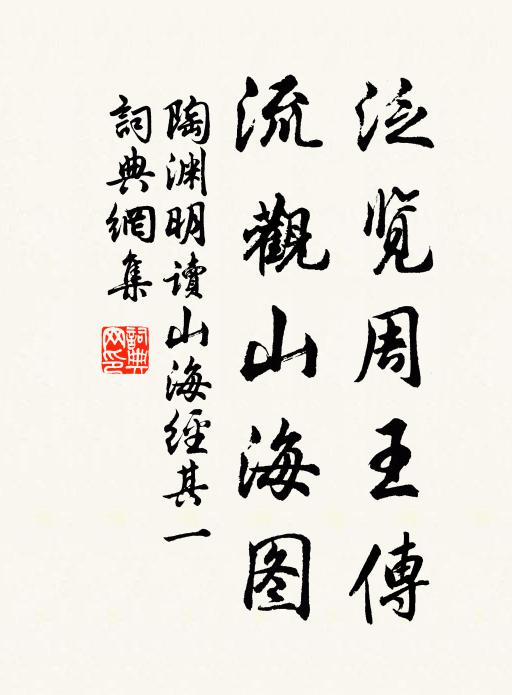 泛览周王傳
流觀山海图
陶渊明讀山海經其一
詞典網集
詞典
网印